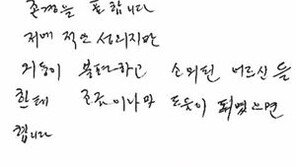 존경을 표합니다
저에 적은 성의지만
거동이 불편하고 소외된 어르신들
한테 조금이나마 도움이 되였으면
합니다